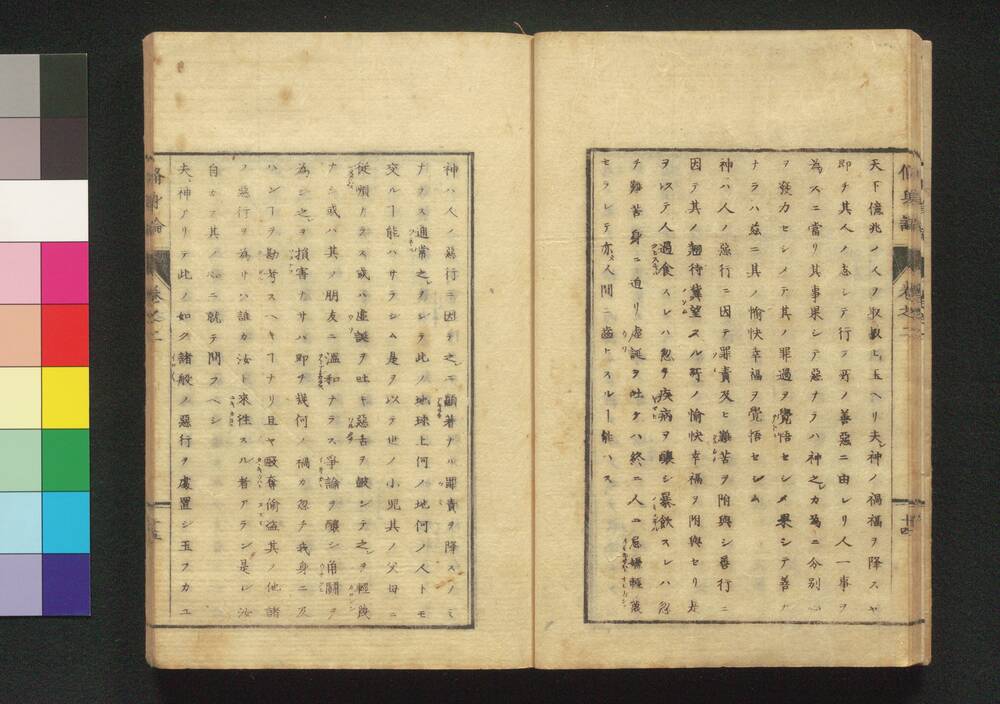 天下億兆ノ人ヲ馭シ玉ヘリ夫レ神ノ禍福ヲ降スヤ
即チ其人ノ志シテ行フ所ノ善惡ニ由レリ人一事ヲ
為スニ當リ其事果シテ惡ナラハ神之カ為ニ分別心
ヲ發力セシメテ其ノ罪過ヲ覺悟セシメ果シテ善ナ
ナラハ茲ニ其ノ愉快幸福ヲ覺悟セシム
神ハ人ノ惡行ニ因テ罪責及ヒ難苦ヲ附與シ善行ニ
因テ其ノ翹待冀望スル所ノ愉快幸福ヲ附與セリ是
ヲ以テ人過食スレハ忽チ疾病ヲ釀シ暴飲スレハ忽
チ難苦身ニ迫リ虛誕ヲ吐ケハ終ニ人ニ忌嫌輕蔑
セラレテ亦人間ニ齒トスルヿ能ハス
脩身論 卷之二 十四
神ハ人ノ惡行ニ因テ之ニ顯著ナル罪責ヲ降スノミ
ナラス通常之ヲシテ此ノ地球上何ノ地何ノ人トモ
交ルヿ能ハサラシム是ヲ以テ世ノ小兒其ノ父母ニ
從順ナラス或ハ虛誕ヲ吐キ惡言ヲ皷シテ之ヲ輕蔑
ナシ或ハ其ノ朋友ニ溫和ナラス爭論ヲ釀シ甬鬭ヲ
為シ之ヲ損害ナサハ即ヲ幾何ノ禍カ忽チ我身ニ及
ハンヿヲ勘考スヘキヿナリ且ヤ毆奪偷盜其ノ他諸
ノ惡行ヲ為サハ誰カ汝ト來徃スル者アラン是レ汝
自カラ其ノ心ニ就テ問フヘシ
夫レ神アリテ此ノ如ク諸般ノ惡行ヲ處置シ玉フカユ
脩身論 卷之二 十五